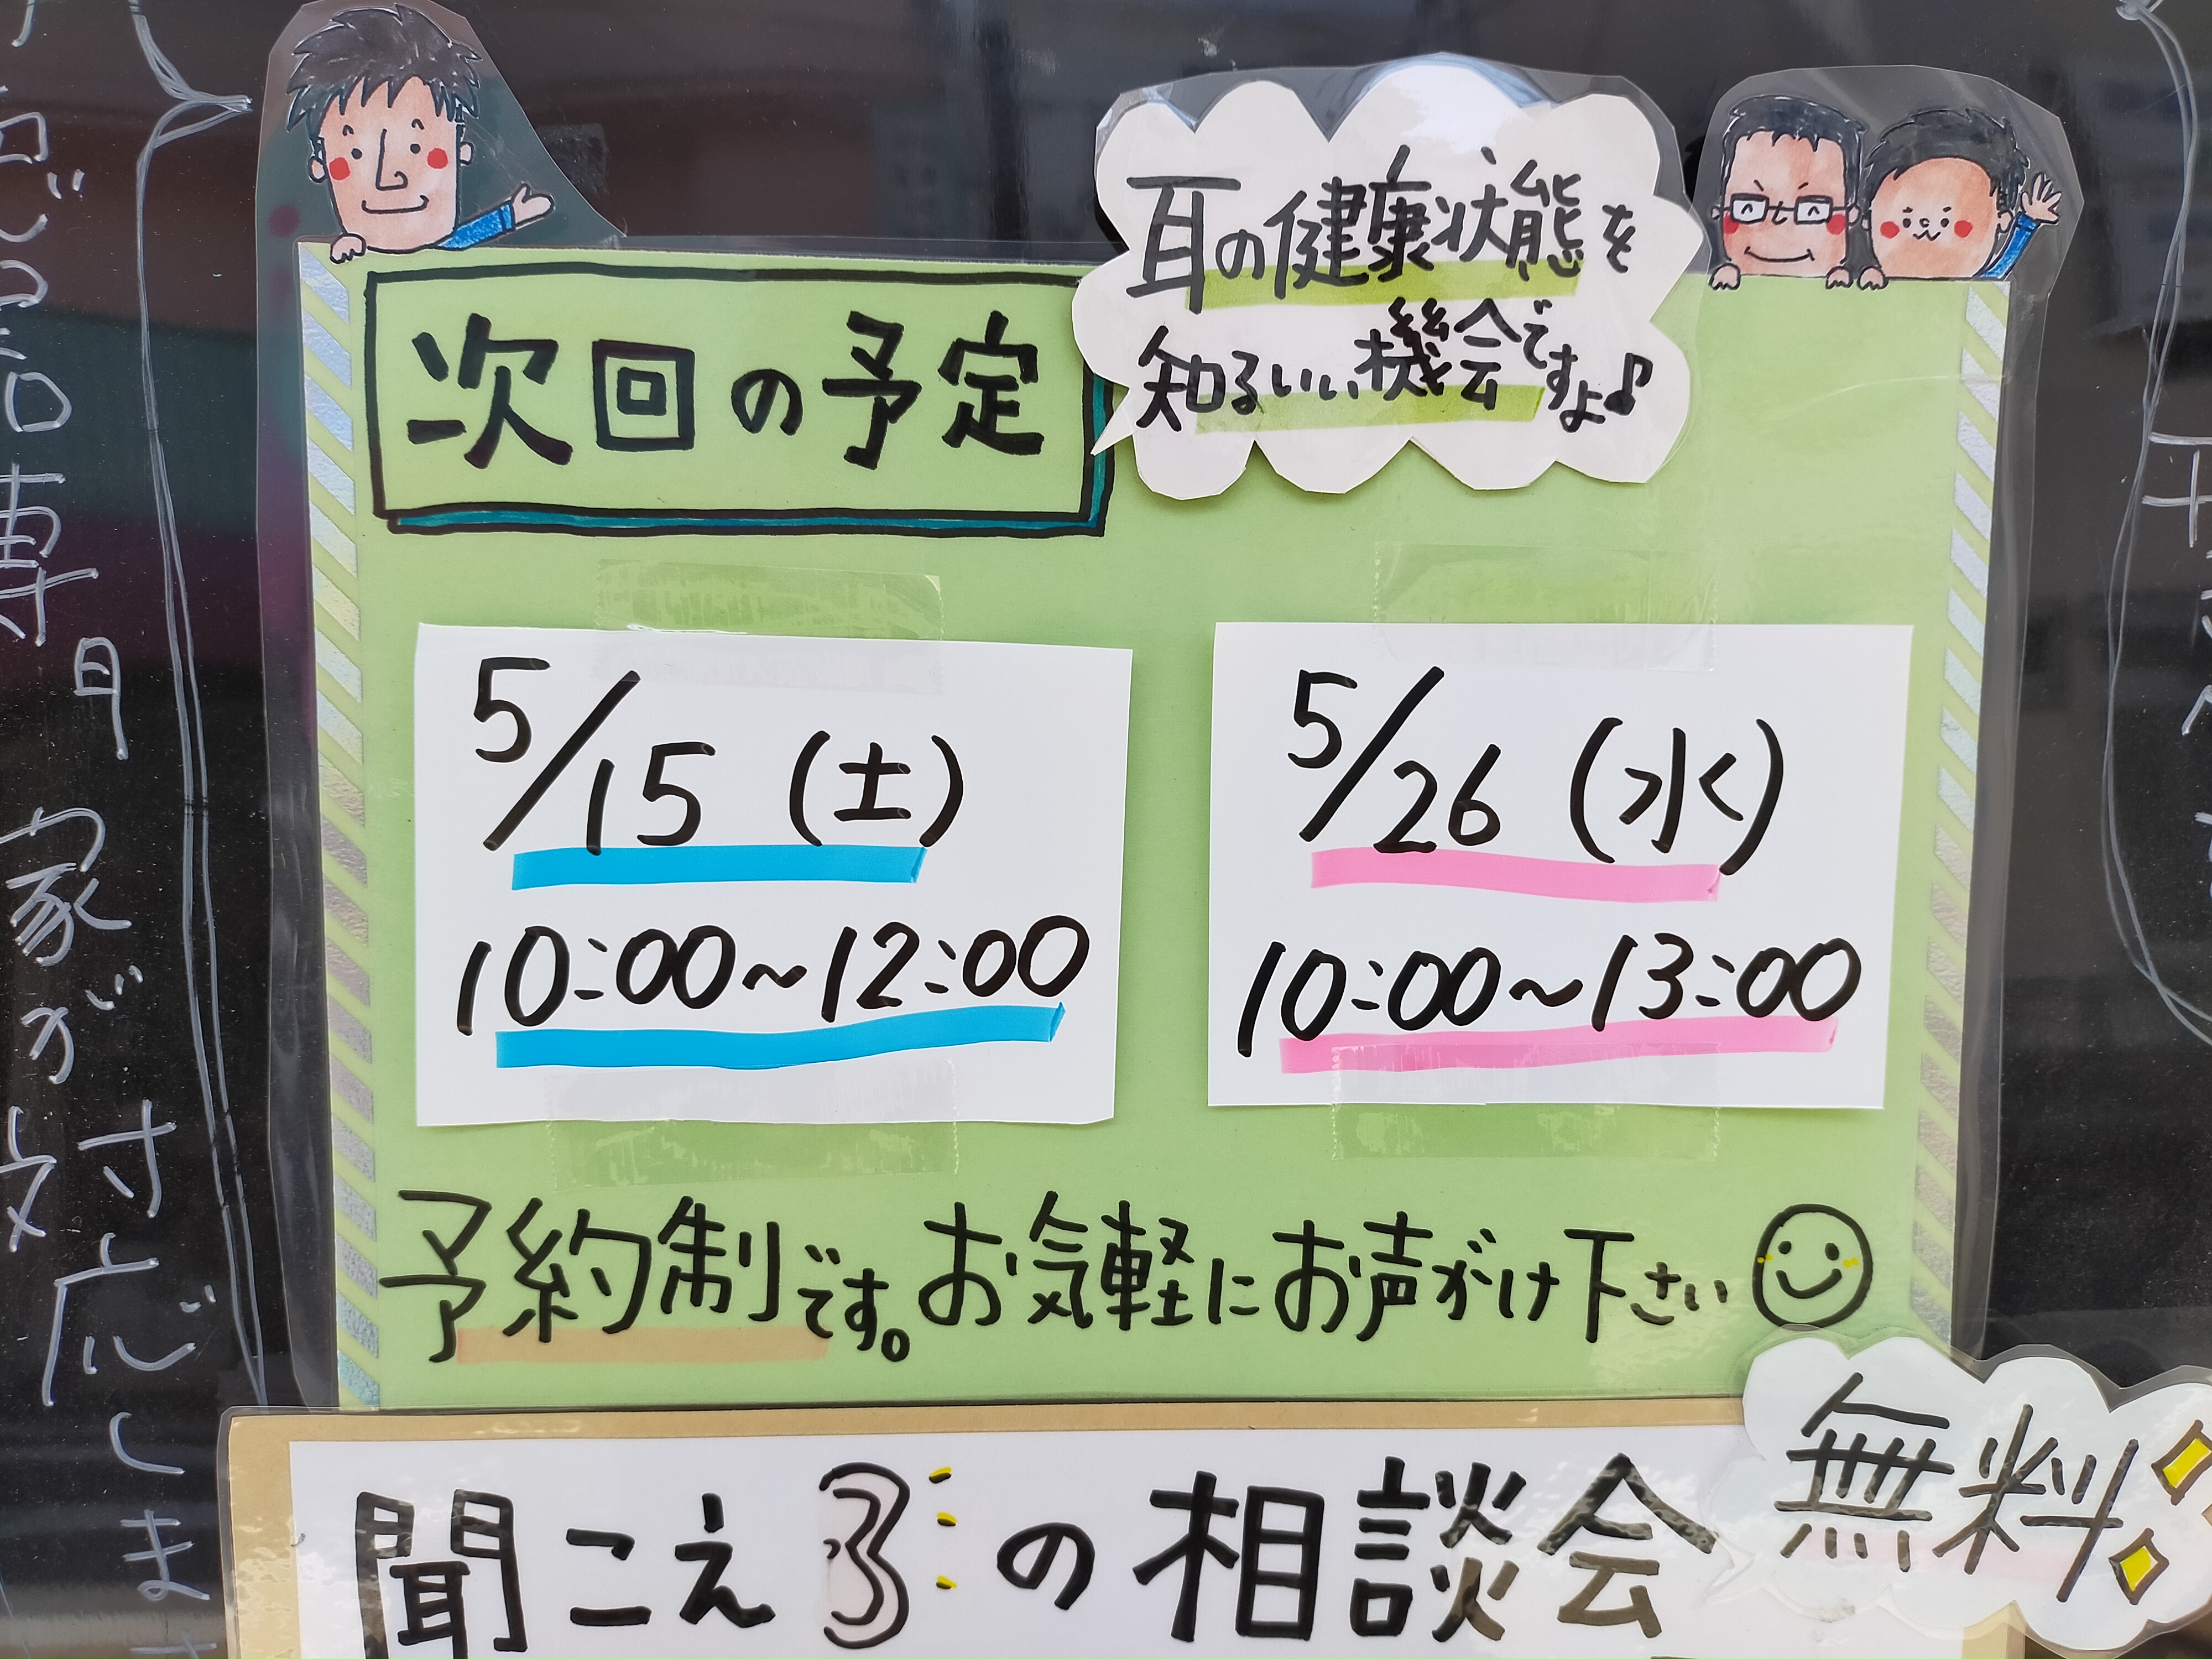 耳の健康状態を
知るいい機会ですよ♪
次回の予定
5/15 (土)
10:00~12:00
5/26 (水)
10:00~13:00
予約制です。お気軽にお声がけ下さい
無料
聞こえの相談会
専門家が
対応しま